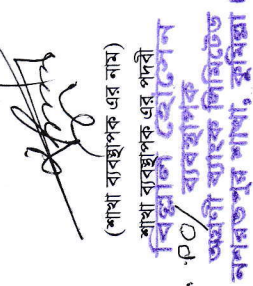 (শাখা ব্যবস্থাপক এর নাম)
শাখা ব্যবস্থাপক এর পদবী
বিল্লাল হোসেন
ব্যবস্থাপক
অগ্রণী ব্যাংক লিমিটেড
শাখা, কুমিল্লা